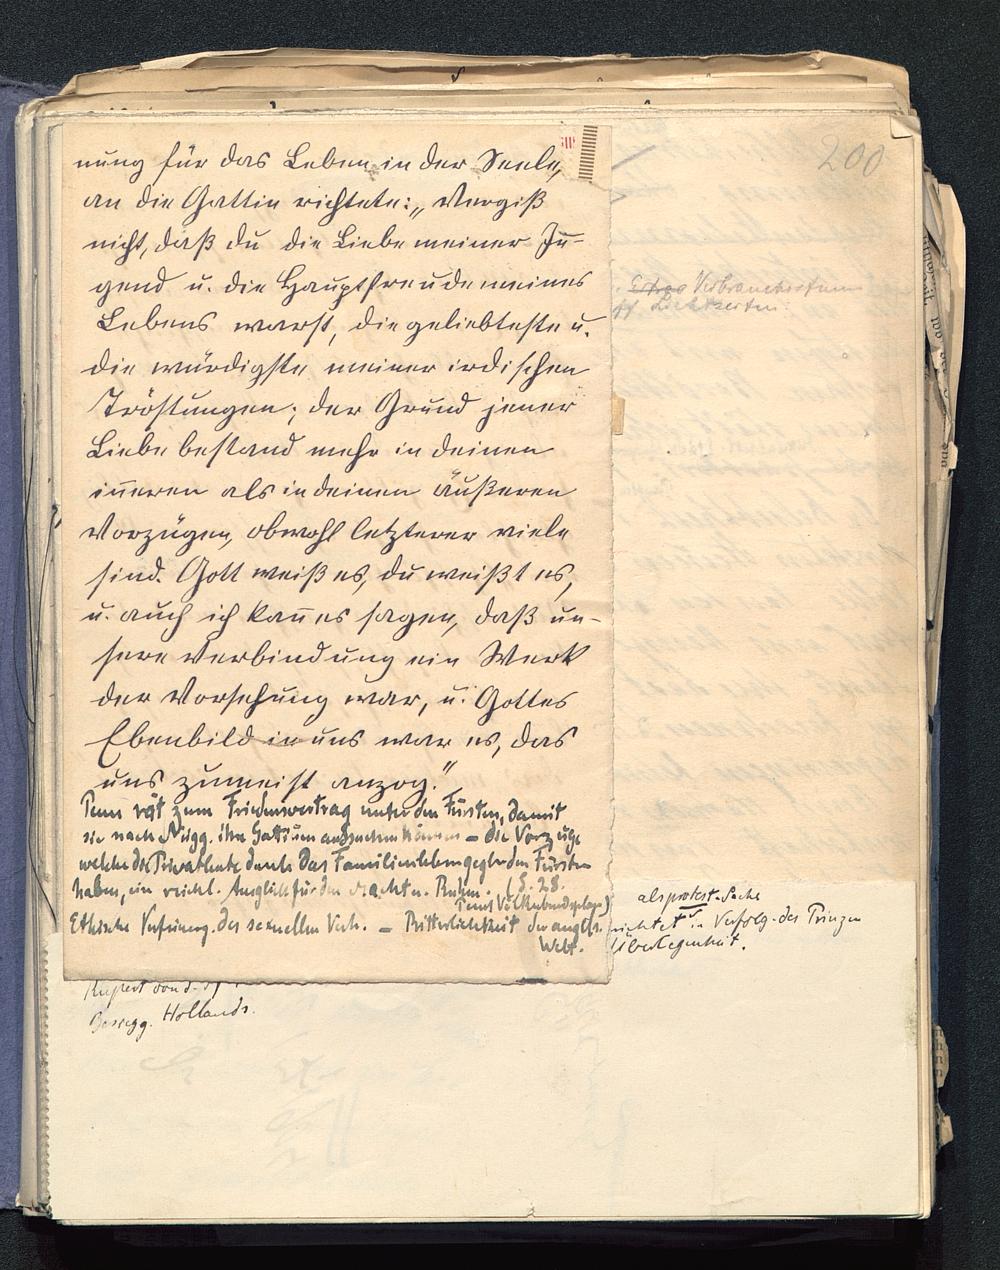 200
nung für das Leben in der Seele,
an die Gattin richtete: „Vergiß
nicht, daß du die Liebe meiner Ju-
gend u. die Hauptfreude meines
Lebens warst, die geliebteste u.
die würdigste meiner irdischen
Tröstungen; der Grund jener
Liebe bestand mehr in deinen
iñeren als in deinen äußeren
Vorzügen, obwohl letzterer viele
sind. Gott weiß es, du weißt es,
u. auch ich kañ es sagen, daß un-
sere Verbindung ein Werk
der Vorsehung war, u. Gottes
Ebenbild in uns war es, das
uns zumeist anzog."
Penn rät zum Friedensvertrag unter den Fürsten, damit
sie nach Neigg. ihre Gattinen aussuchen können – die Vorzüge
welche die Privatleute durch das Familienleben geg. den Fürsten
haben, ein reichl. Ausgleich für den Macht u. Ruhm. (S. 28.
Penns Völkerbundsplan)
Ethische Verfeinerg. des sexuellen Verh. – Ritterlichkeit der angls.
Welt.
als protest. Sache
richtet in Verfolg. des Prinzen
Überlegenheit.
Rupert von d.
Hollands.